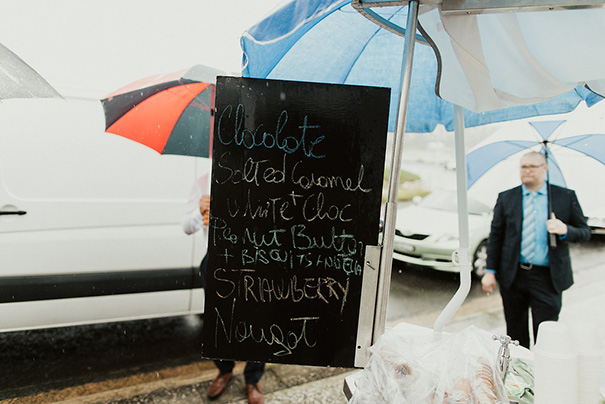 Chocolate
Salted Caramel
White + Choc
Peanut Butter
+ BISCUITS + NUTELLA
STRAWBERRY
Nougat